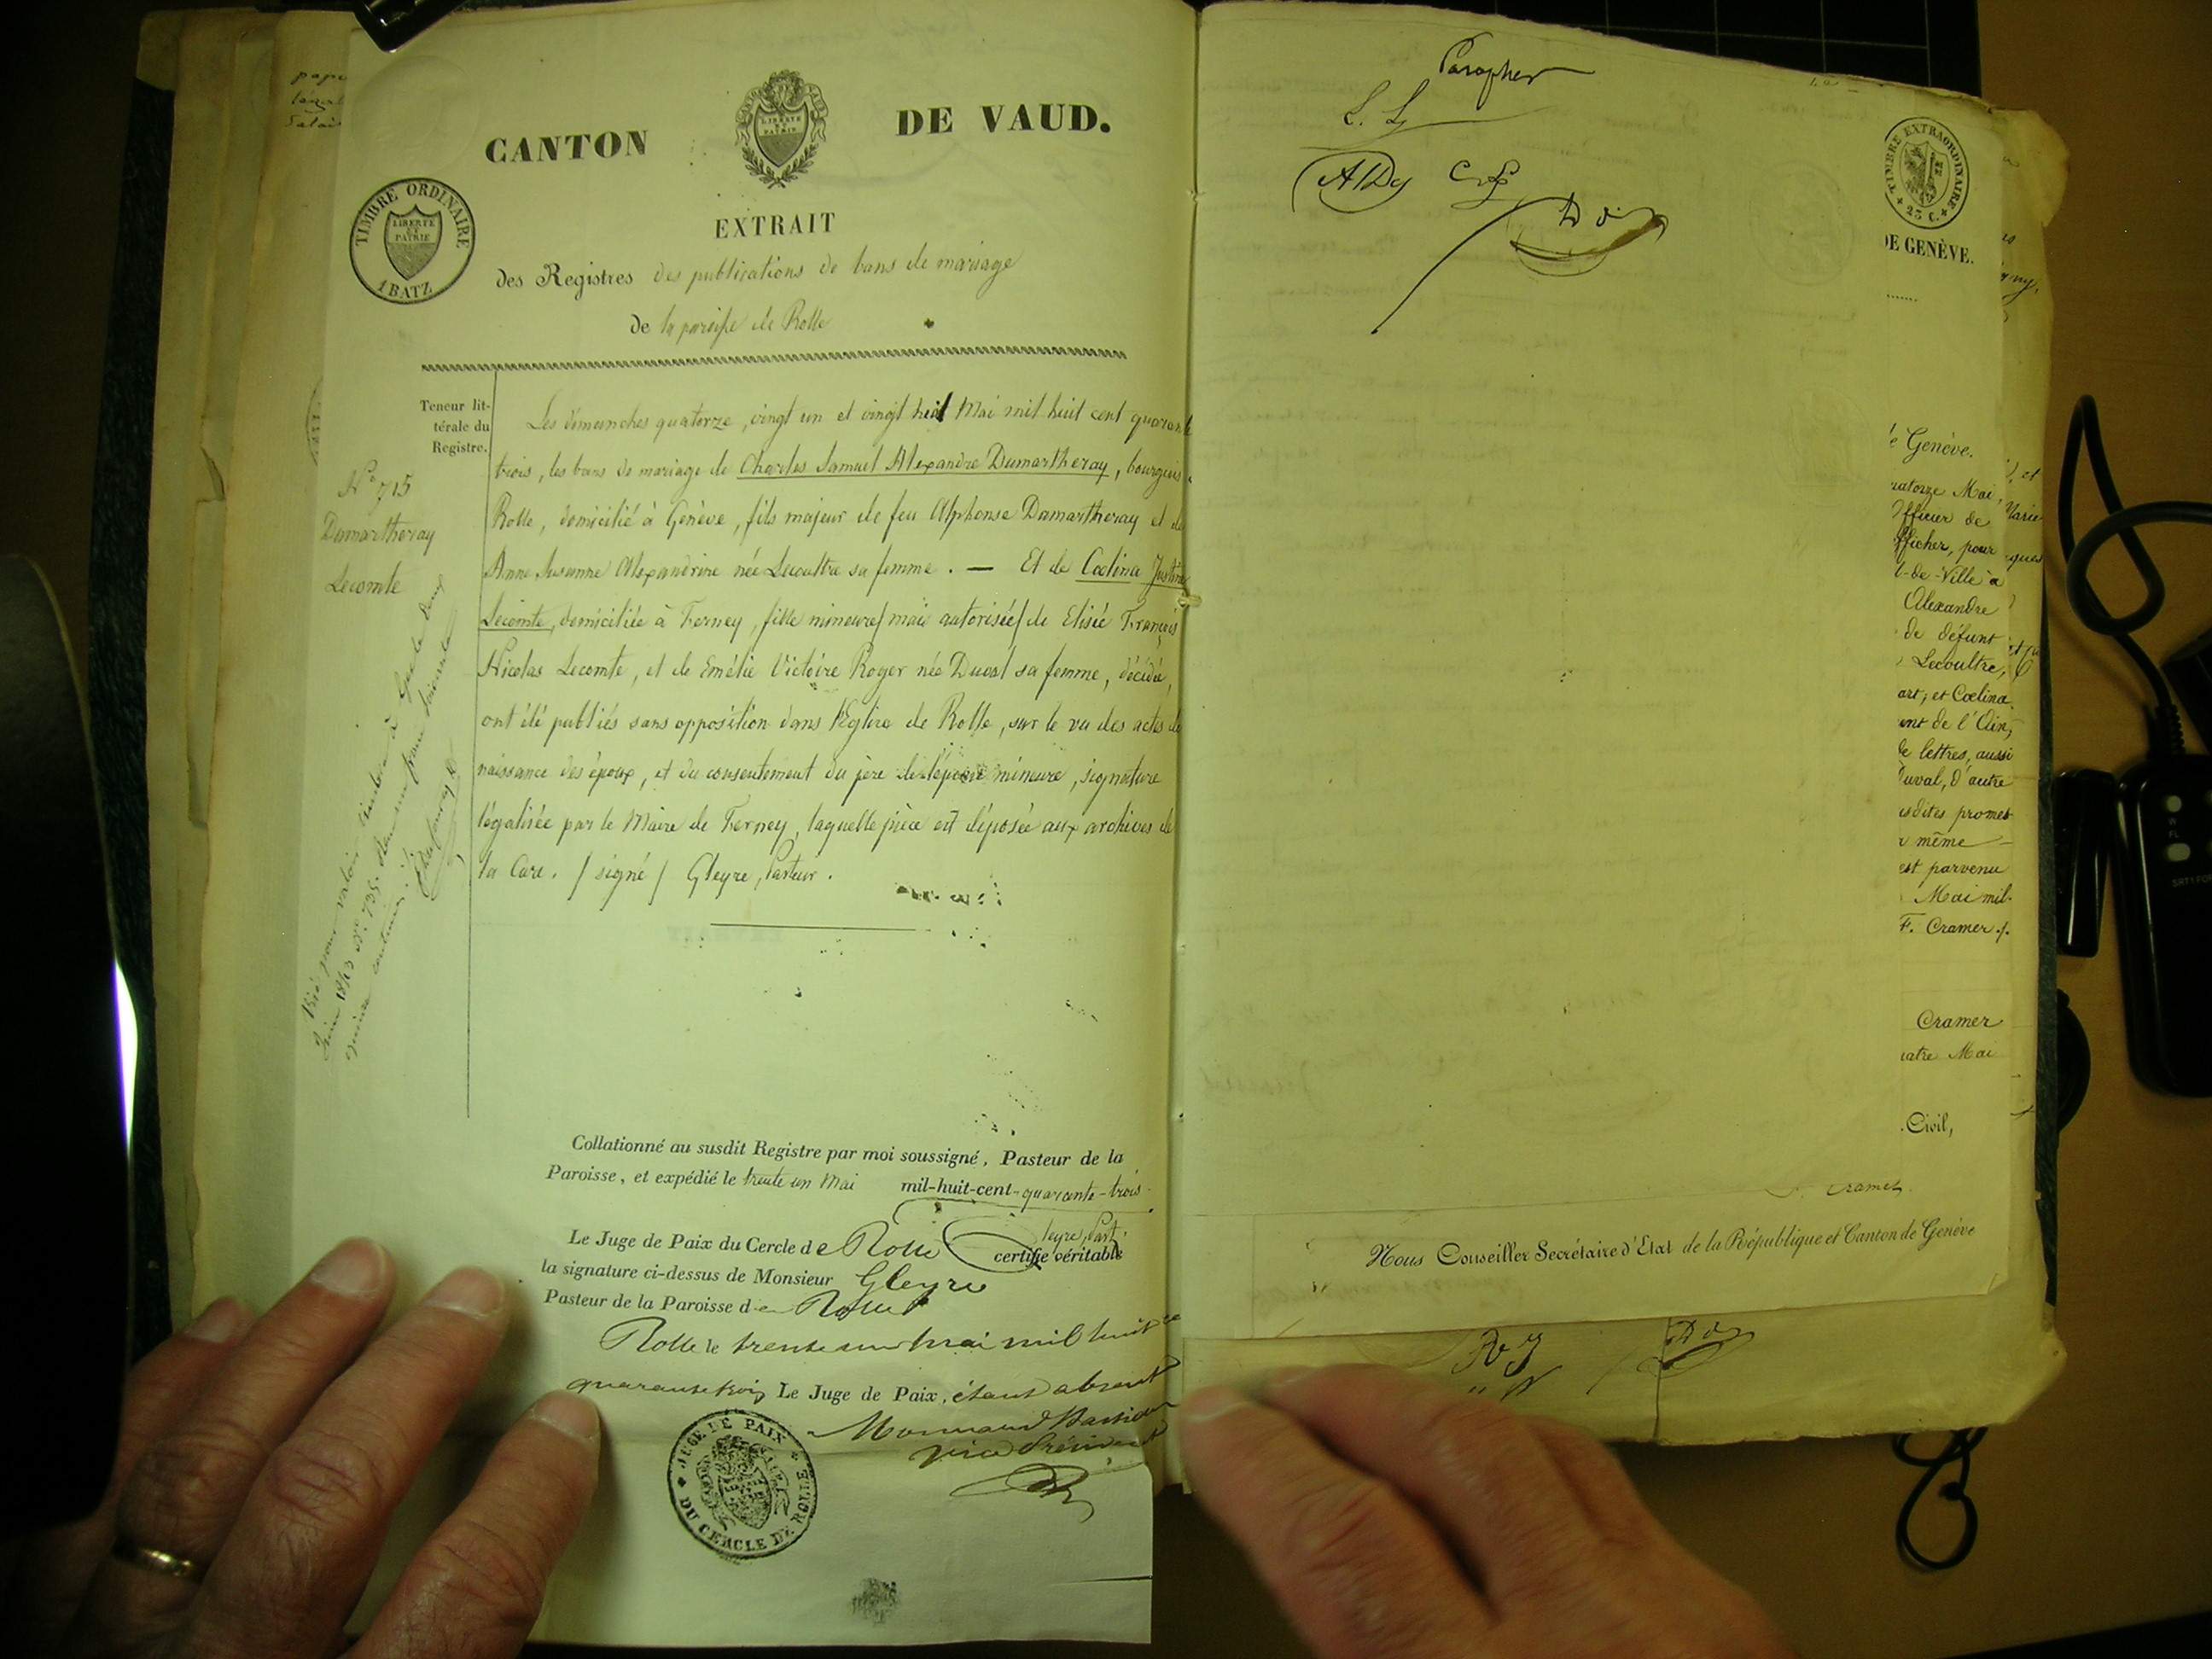 CANTON DE VAUD.
LIBERTÉ ET PATRIE
TIMBRE ORDINAIRE
LIBERTÉ ET PATRIE
1 BATZ
EXTRAIT
des Registres des publications de bans de mariage
de la paroisse de Rolle
Teneur lit-
térale du
Registre.
No 715
Dumartheray
Lecomte
Les dimanches quatorze, vingt un et vingt huit Mai mil huit cent quarante
trois, les bans de mariage de Charles Samuel Alexandre Dumartheray, bourgeois
Rolle, domicilié à Genève, fils majeur de feu Alphonse Dumartheray et de
Anne Susanne Alexandrine née Lecoultre sa femme. — Et de Coelina Justine
Lecomte, domiciliée à Ferney, fille mineure / mais autorisée / de Elisée François
Nicolas Lecomte, et de Emélie Victoire Roger née Duval sa femme, décédée,
ont été publiés sans opposition dans l'Eglise de Rolle, sur le vu des actes de
naissance des époux, et du consentement du père de l'épouse mineure, signature
légalisée par le Maire de Ferney, laquelle pièce est déposée aux archives de
la Cure. / signé / Gleyre, Pasteur.
Visé pour valoir timbre à Gex le deux
Juin 1843 No 735. Reçu
Collationné au susdit Registre par moi soussigné, Pasteur de la
Paroisse, et expédié le trente un Mai mil-huit-cent-quarante-trois
Gleyre, Past.
Le Juge de Paix du Cercle de Rolle certifie véritable
la signature ci-dessus de Monsieur Gleyre
Pasteur de la Paroisse de Rolle
Rolle le trente un mai mil huit
quarante trois Le Juge de Paix, étant absent
Vice Président
JUGE DE PAIX
DU CERCLE DE ROLLE
Parapher
L. L
TIMBRE EXTRAORDINAIRE
25 C.
DE GENÈVE.
Genève.
Mai,
Officier de
fficher, pour
l-de-Ville à
Alexandre
de défunt
Lecoultre,
art; et Coelina
ent de l'Ain,
de lettres, aussi
Duval, d'autre
usdites promes
même
est parvenu
Mai mil-
F. Cramer.
Cramer
Mai
Civil,
Cramer
Nous Conseiller Secrétaire d'Etat de la République et Canton de Genève